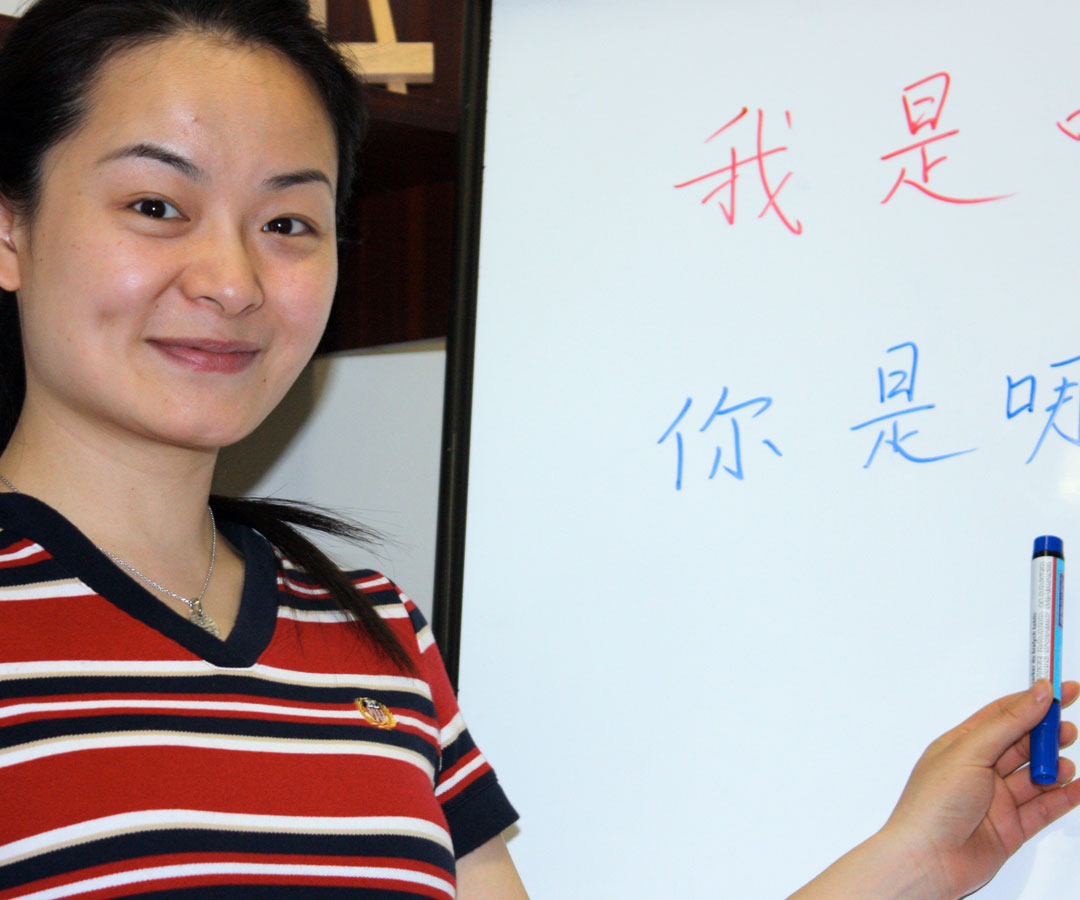 我是
你是哪